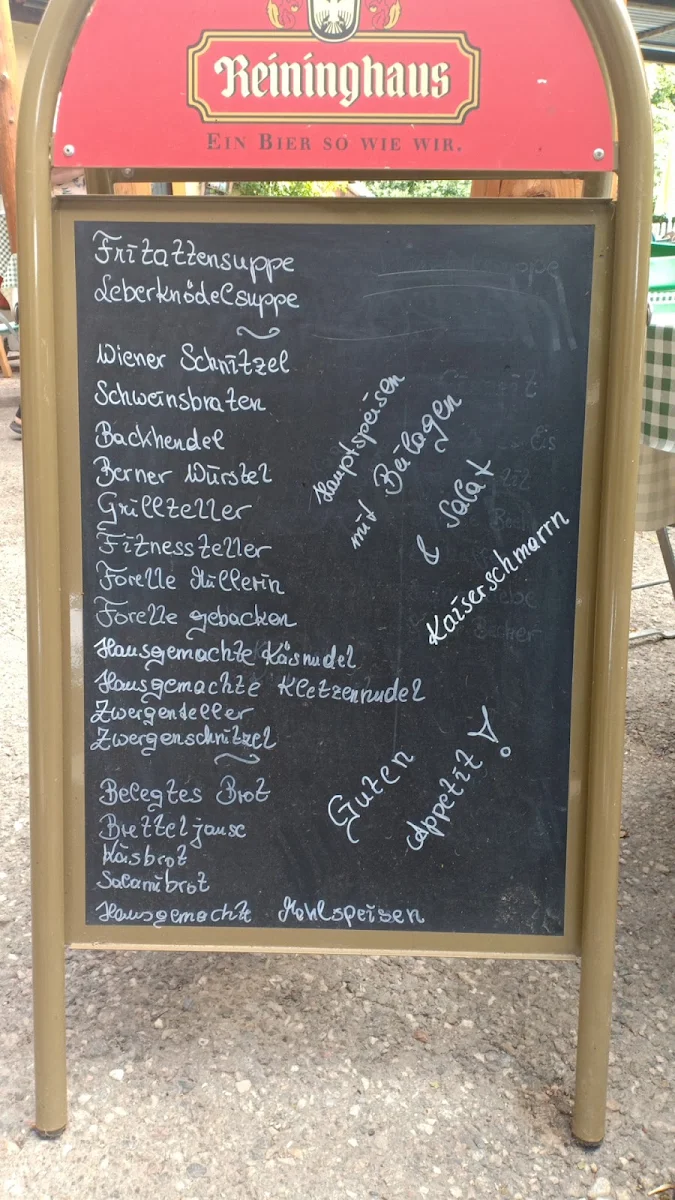 Reininghaus
EIN BIER SO WIE WIR.
Fritattensuppe
Leberknödelsuppe
Wiener Schnitzel
Schweinsbraten
Backhendel
Berner Würstel
Grillteller
Fitnessteller
Forelle Müllerin
Forelle gebacken
Hausgemachte Käsnudel
Hausgemachte Kletzennudel
Zwergenteller
Zwergenschnitzel
Belegtes Brot
Bretteljause
Käsbrot
Salamibrot
Hausgemachte Mehlspeisen
Hauptspeisen
mit Beilagen
& Salat
Kaiserschmarrn
Guten
Appetit!
Eis